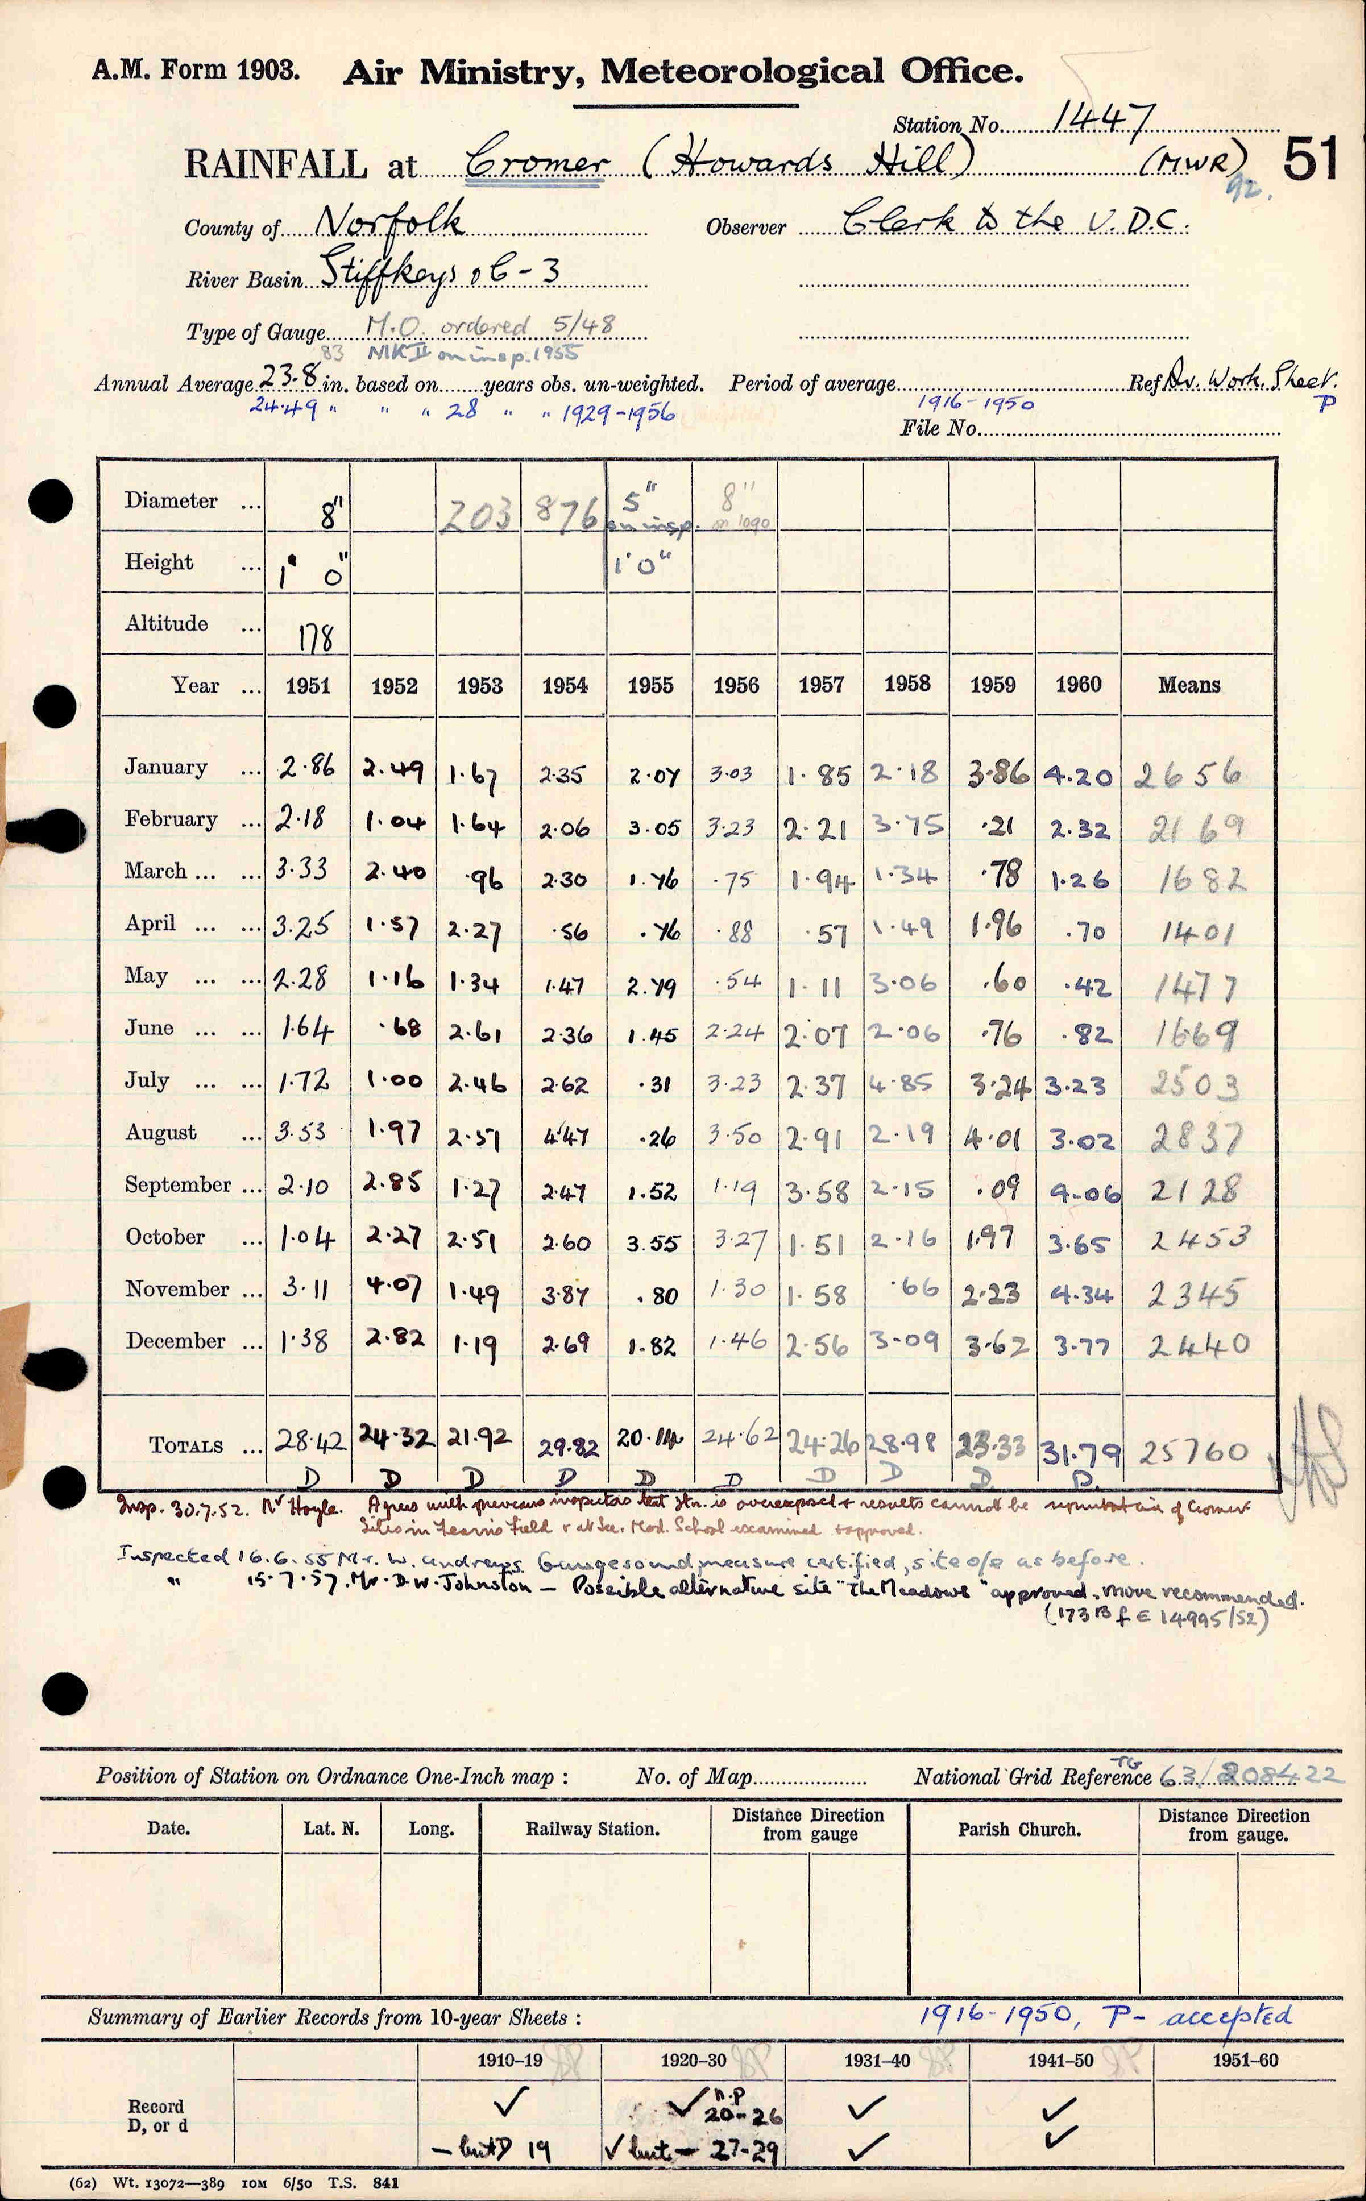 A.M. Form 1903. Air Ministry, Meteorological Office.
Station No. 1447
RAINFALL at Cromer (Howards Hill) (MWR) 51
92.
County of Norfolk Observer Clerk to the U.D.C.
River Basin Stiffkeys 06-3
Type of Gauge M.O. ordered 5/48
83 MK II on insp. 1955
Annual Average 23.8 in. based on years obs. un-weighted. Period of average Ref Av. Work. Sheet.
24.49 " " " 28 " " 1929-1956 1916-1950 P
File No.
Diameter ... 8" 203 876 5" on insp. 8"
Height ... 1' 0" 1' 0"
Altitude ... 178
Year ... 1951 1952 1953 1954 1955 1956 1957 1958 1959 1960 Means
January ... 2.86 2.49 1.67 2.35 2.07 3.03 1.85 2.18 3.86 4.20 2656
February ... 2.18 1.04 1.64 2.06 3.05 3.23 2.21 3.75 .21 2.32 2169
March ... ... 3.33 2.40 .96 2.30 1.76 .75 1.94 1.34 .78 1.26 1682
April ... ... 3.25 1.57 2.27 .56 .76 .88 .57 1.49 1.96 .70 1401
May ... ... 2.28 1.16 1.34 1.47 2.79 .54 1.11 3.06 .60 .42 1477
June ... ... 1.64 .68 2.61 2.36 1.45 2.24 2.07 2.06 .76 .82 1669
July ... ... 1.72 1.00 2.46 2.62 .31 3.23 2.37 4.85 3.24 3.23 2503
August ... 3.53 1.97 2.51 4.47 .26 3.50 2.91 2.19 4.01 3.02 2837
September ... 2.10 2.85 1.27 2.47 1.52 1.19 3.58 2.15 .09 4.06 2128
October ... 1.04 2.27 2.51 2.60 3.55 3.27 1.51 2.16 1.97 3.65 2453
November ... 3.11 4.07 1.49 3.87 .80 1.30 1.58 .66 2.23 4.34 2345
December ... 1.38 2.82 1.19 2.69 1.82 1.46 2.56 3.09 3.62 3.77 2440
TOTALS ... 28.42 24.32 21.92 29.82 20.14 24.62 24.26 28.98 23.33 31.79 25760
D D D D D D D D D D
Insp. 30.7.52. Mr Hoyle. Agrees with previous inspectors that stn. is overexposed & results cannot be representative of Cromer.
Sites in Tennis Field & at Sec. Mod. School examined & approved.
Inspected 16.6.55 Mr. W. Andrews Gauge sound, measure certified, site o/e as before.
" 15.7.57. Mr. D.W. Johnston — Possible alternative site "The Meadows" approved, move recommended.
(173 B f E 14995/52)
Position of Station on Ordnance One-Inch map : No. of Map National Grid Reference TG 63/208422
Date. Lat. N. Long. Railway Station. Distance Direction from gauge Parish Church. Distance Direction from gauge.
Summary of Earlier Records from 10-year Sheets : 1916-1950, P - accepted
1910–19 1920–30 1931–40 1941–50 1951–60
Record D, or d ✓ ✓ n.p 20-26 ✓ ✓
— but D 19 ✓ but — 27-29 ✓ ✓
(62) Wt. 13072—389 10M 6/50 T.S. 841